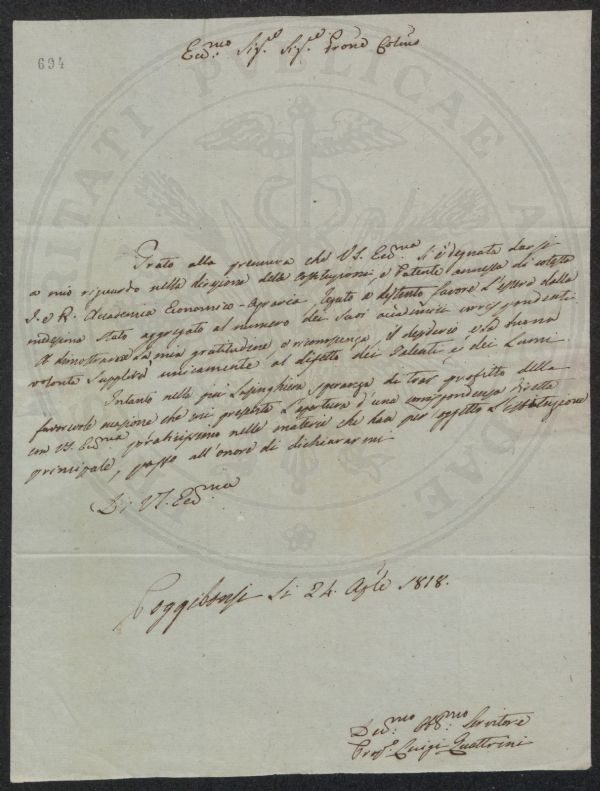 694
Ecc.mo Sig.e Sig.e Prone Colmo
Grato alla premura che VS. Ecc.ma si è degnata darsi
a mio riguardo nella direzione della Costituzione, e Patente annessa di cotesta
I. e R. Accademia Economico-Agraria, legato e distinto favore l'essere dalla
medesima stato aggregato al numero dei Suoi accademici corrispondenti
A dimostrarne la mia gratitudine, o riconoscenza, il desiderio e la buona
volontà Supplirà unicamente al difetto dei Talenti e dei Lumi.
Intanto nella più Lusinghiera Speranza di trar profitto della
favorevole occasione che mi presenta L'apertura d'una corrispondenza diretta
con VS. Ecc.ma praticissimo nelle materie che han per oggetto L'Istituzione
principale, passo all'onore di dichiararmi
Di VS. Ecc.ma
Poggibonsi Li 24. Agle 1818.
Dev.mo Obb.mo Servitore
Luigi Quattrini
PUBLICAE